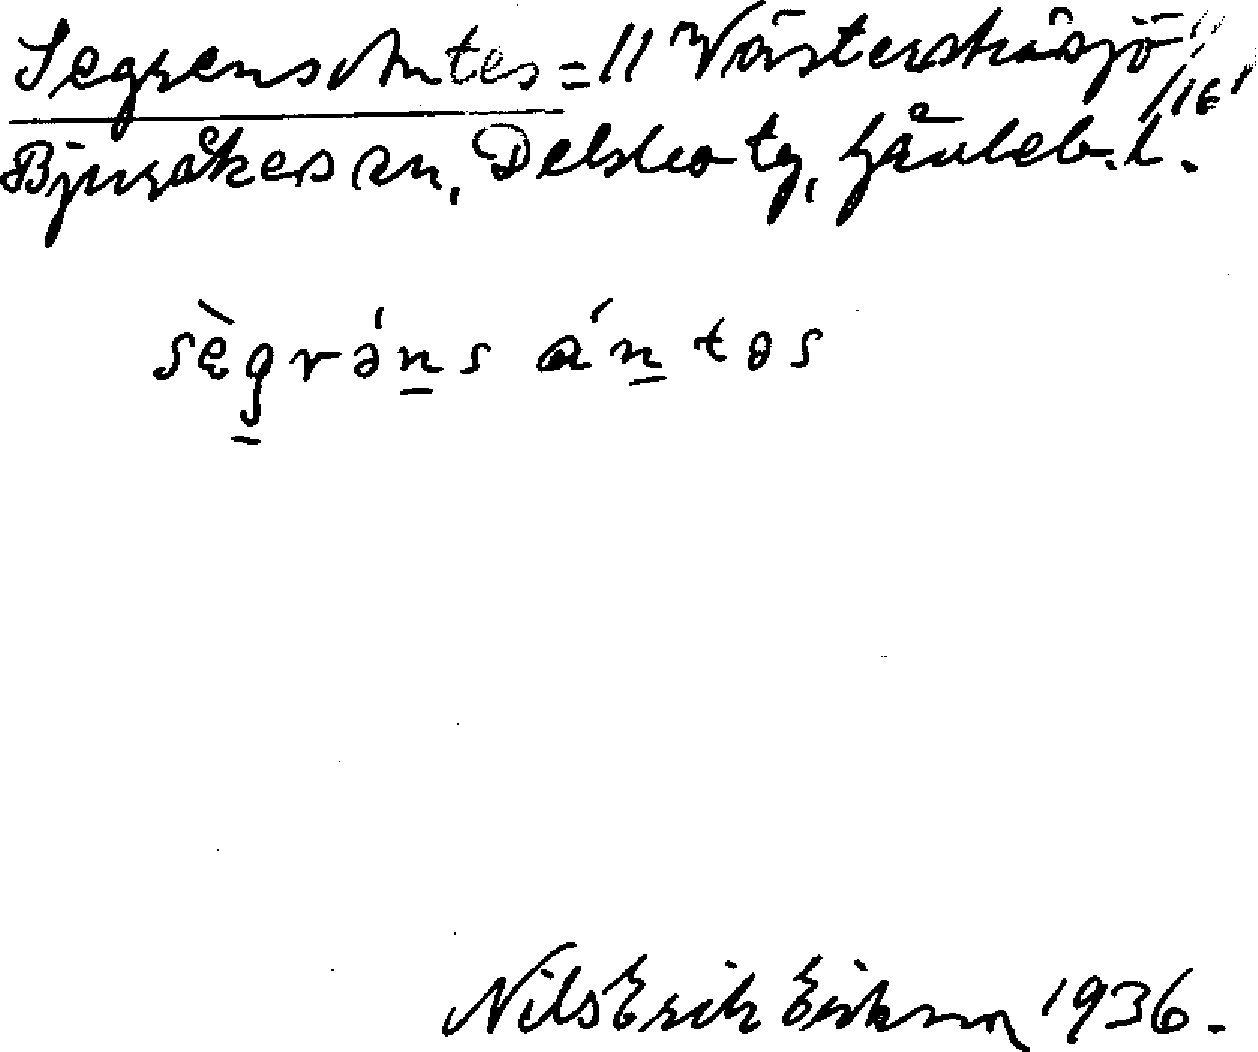 Segrens Antes = "Västerståsjö" 1/16
Bjuråkers sn, Delsbo tg, Gävleb. l.
sègrə́ns ántəs
Nils Erik Eriksson 1936.